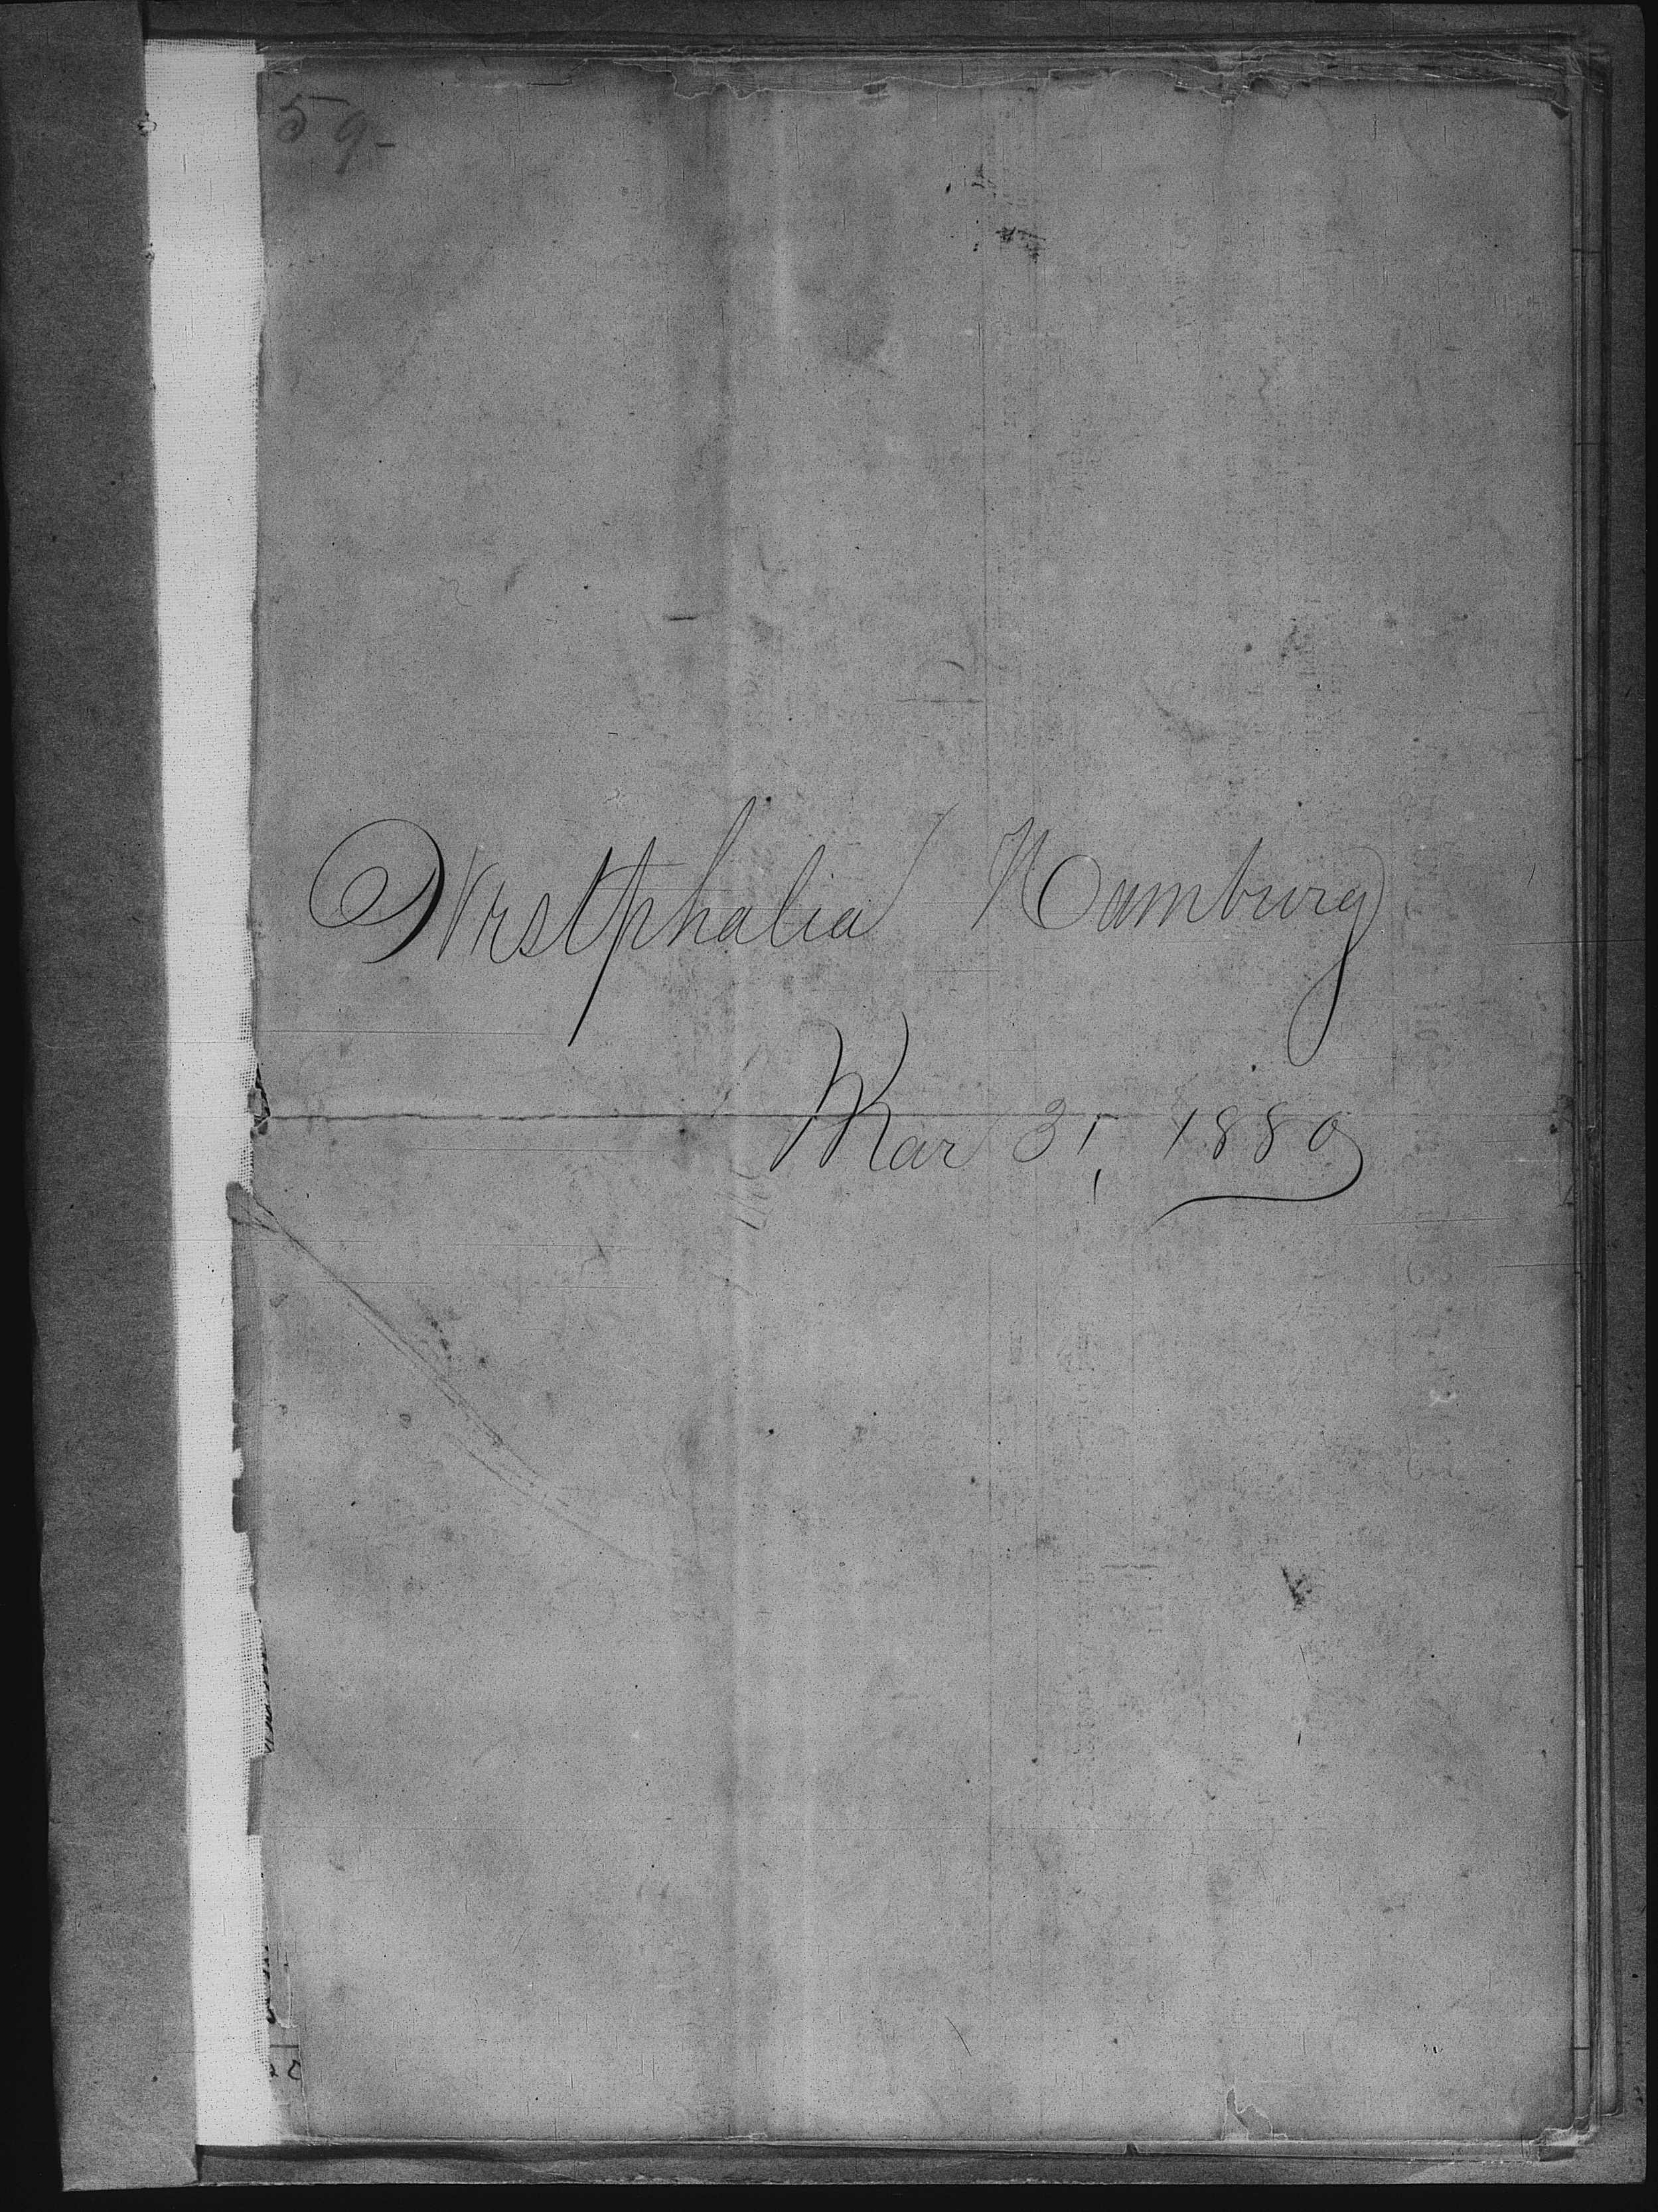 59-
Westphalia Hamburg
Mar 31, 1880